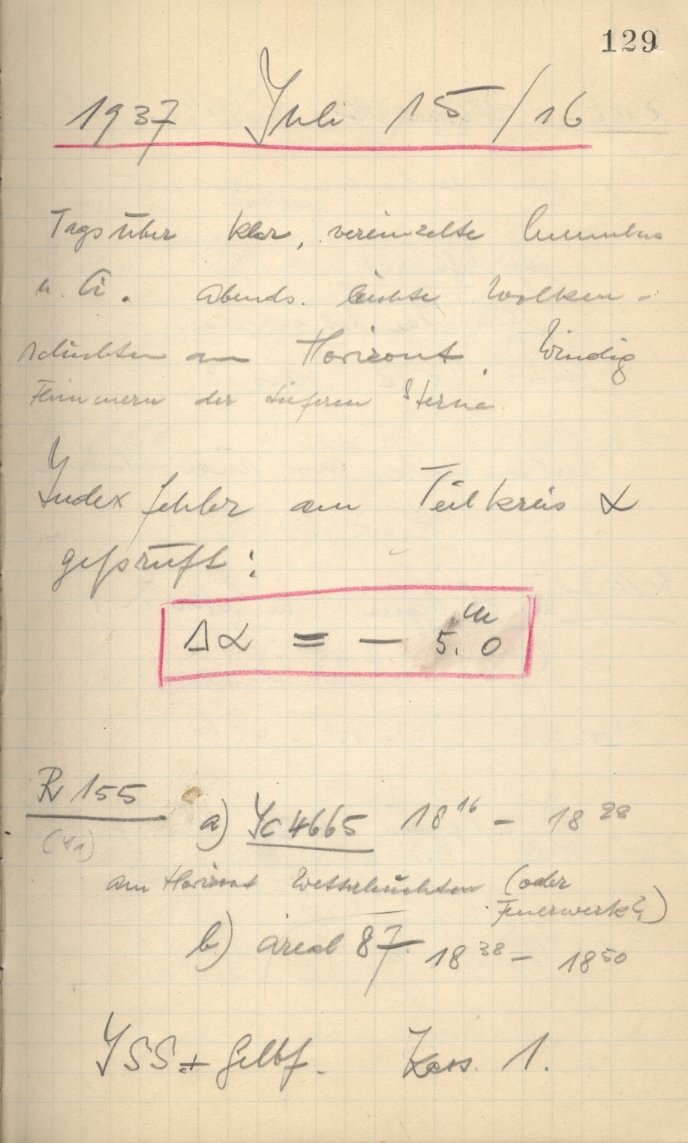 129
1937 Juli 15/16
Tagsüber klar, vereinzelte Cumulus
u. Ci. abends. leichte Wolken-
schichten am Horizont. Windig
Flimmern der tieferen Sterne.
Indexfehler am Teilkreis α
geprüft:
Δα = - 5.0 m
R 155
a) Ic 4665 18 16 - 18 28
am Horizont Wetterleuchten (oder
Feuerwerk?)
b) areal 87. 18 38 - 18 50
ISS + Gelbf. Kass. 1.